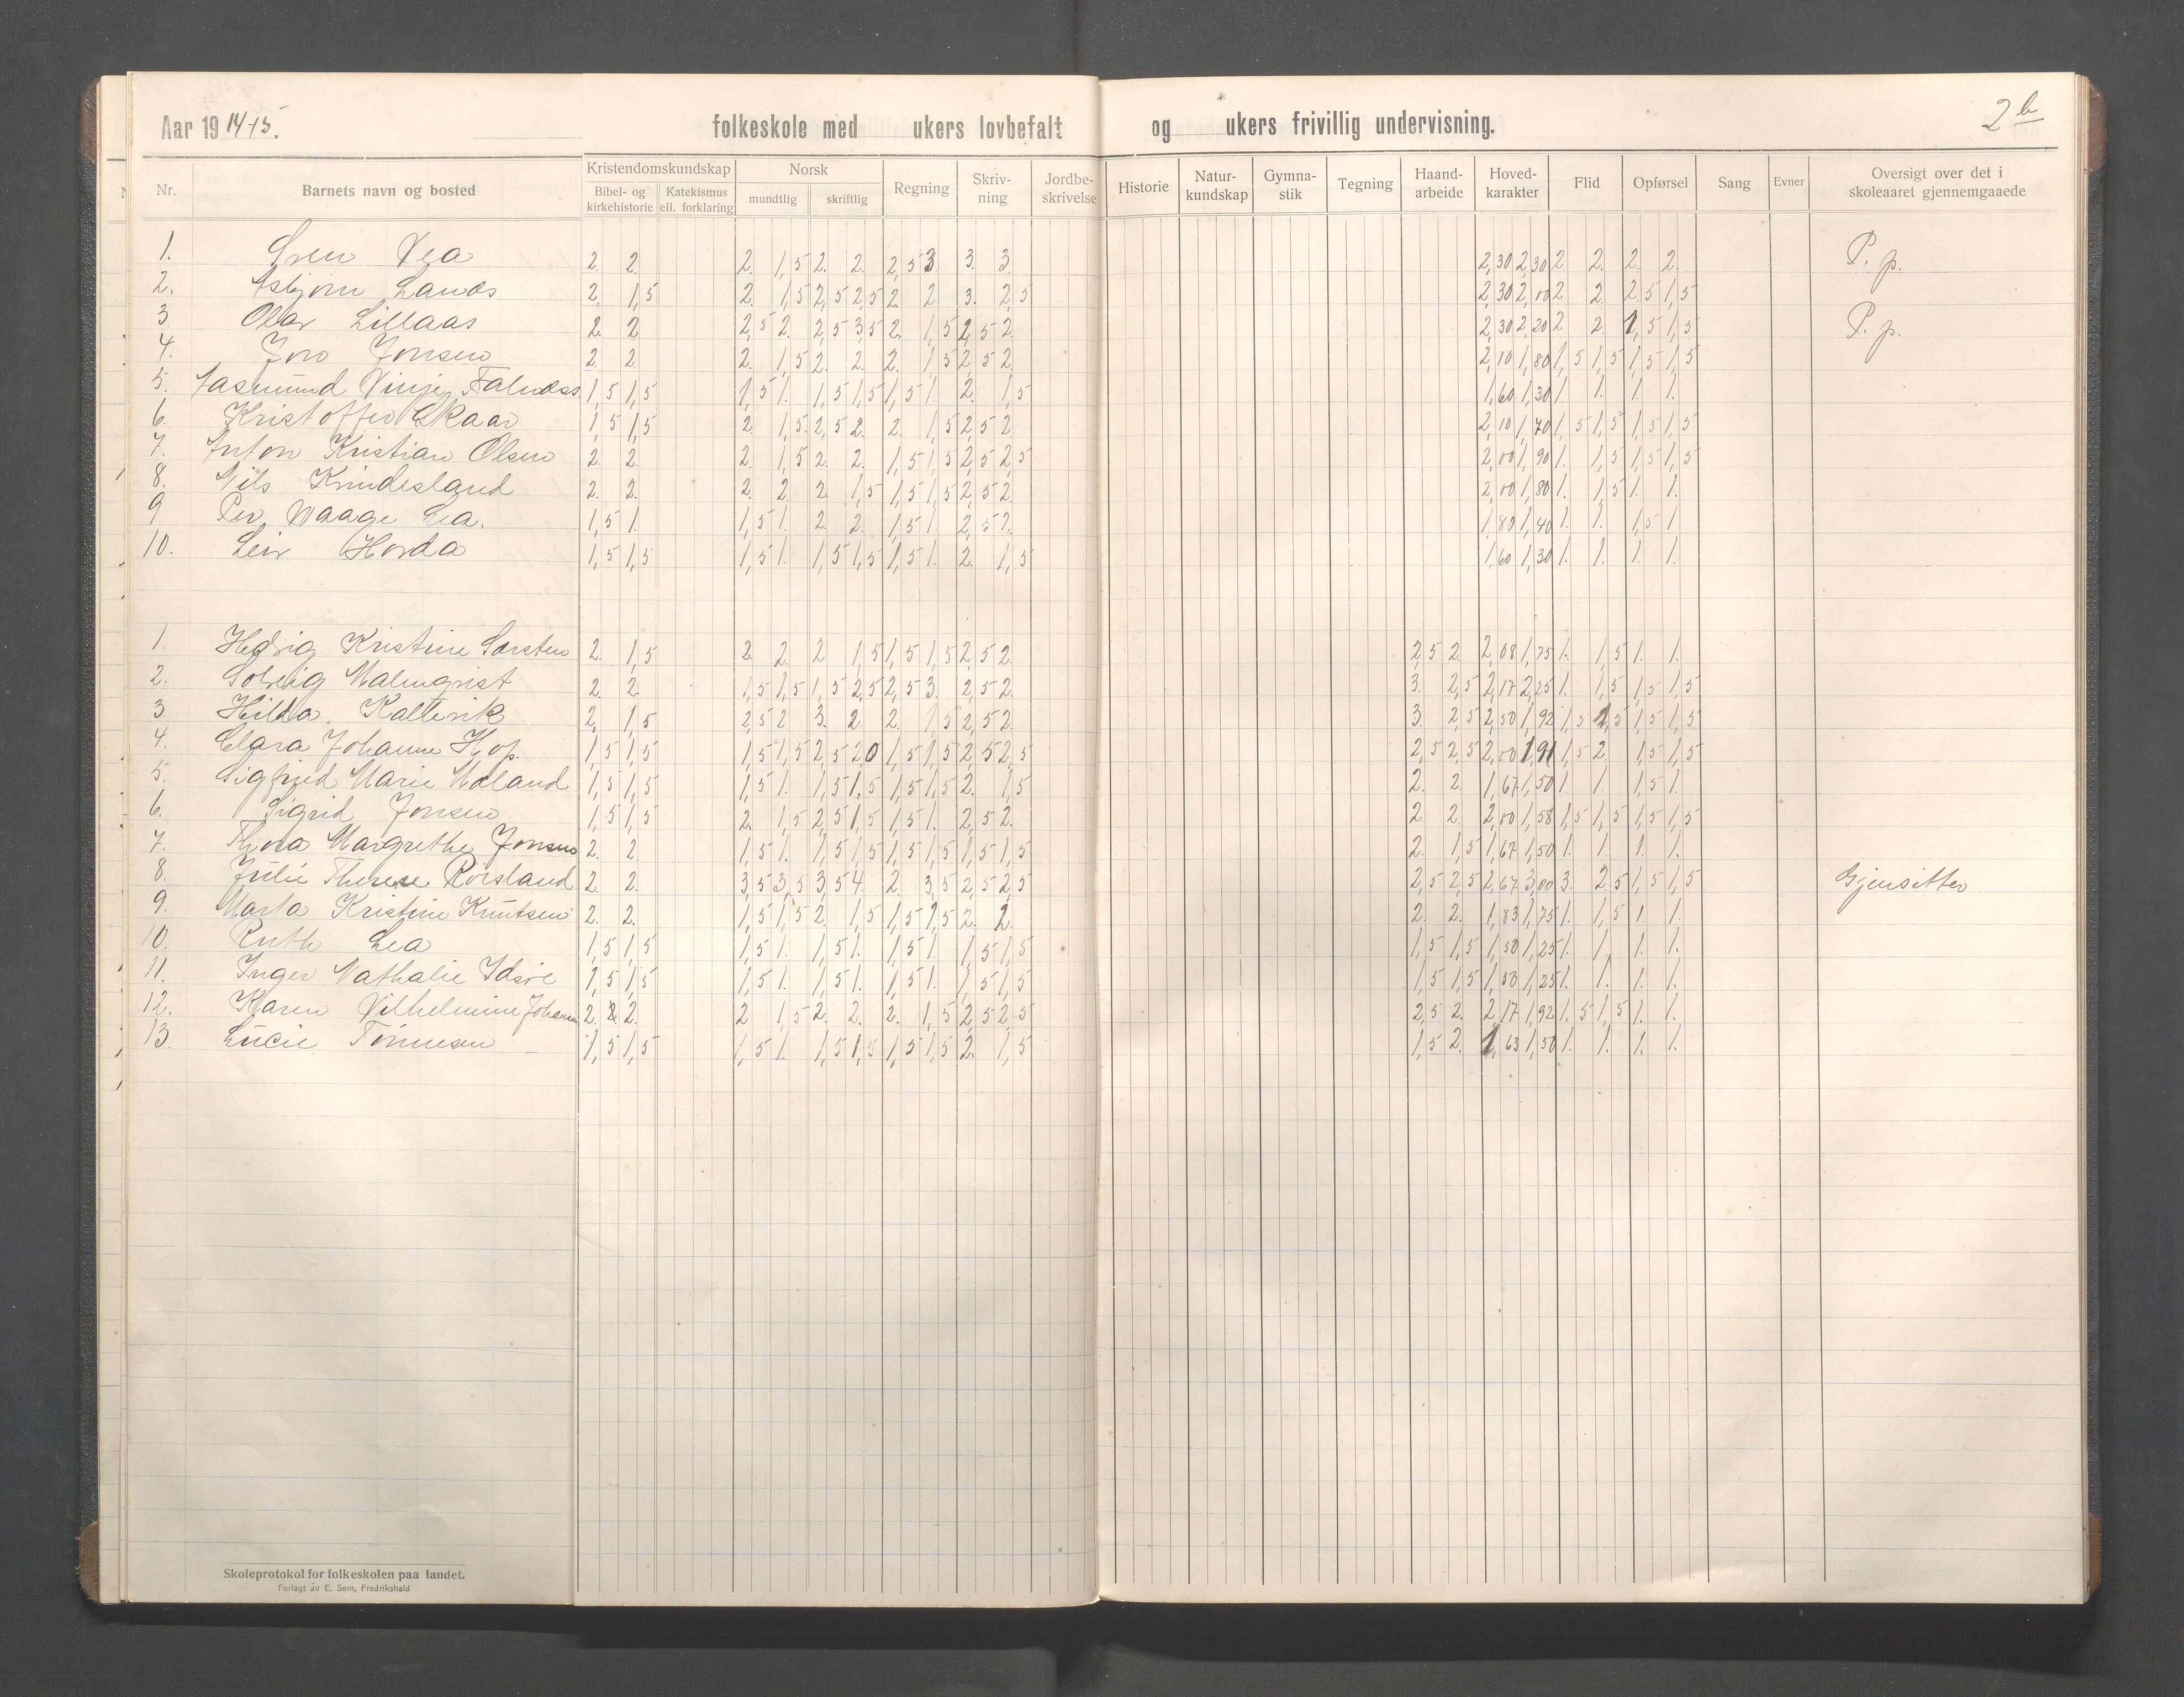 Aar 1914-15. folkeskole med ukers lovbefalt og ukers frivillig undervisning. 2b
Nr. Barnets navn og bosted Kristendomskundskap Bibel- og kirkehistorie Katekismus ell. forklaring Norsk mundtlig skriftlig Regning Skriv-ning Jordbe-skrivelse Historie Natur-kundskap Gymna-stik Tegning Haand-arbeide Hoved-karakter Flid Opførsel Sang Evner Oversigt over det i skoleaaret gjennemgaaede
1. Sven Vea 2. 2. 2. 1,5 2. 2. 2,5 3. 3. 3. 2,30 2,30 2. 2. 2. 2. P. p.
2. Asbjørn Lands 2. 1,5 2. 1,5 2,5 2,5 2. 2. 3. 2,5 2,30 2,00 2. 2. 2,5 1,5
3. Olav Lillaas 2. 2 2,5 2. 2,5 3,5 2. 1,5 2,5 2. 2,30 2,20 2. 2. 1,5 1,5 P. p.
4. Jon Jonsen 2. 2 2. 1,5 2. 2. 2. 1,5 2,5 2. 2,10 1,80 1,5 1,5 1,5 1,5
5. Aasmund Vinje Falnæss 1,5 1,5 1,5 1. 1,5 1,5 1,5 1. 2. 1,5 1,60 1,30 1. 1. 1. 1.
6. Kristoffer Skaar 1,5 1,5 2. 1,5 2,5 2. 2. 1,5 2,5 2 2,10 1,70 1,5 1,5 1,5 1,5
7. Anton Kristian Olsen 2. 2. 2. 1,5 2. 2. 1,5 1,5 2,5 2,5 2,00 1,90 1. 1,5 1,5 1,5
8. Nils Knudesland 2. 2. 2. 2. 2. 1,5 1,5 1,5 2,5 2. 2,00 1,80 1. 1,5 1. 1.
9 Per Waage Lea. 1,5 1. 1,5 1. 2. 2. 1,5 1. 2,5 2. 1,80 1,40 1. 1. 1,5 1
10. Leiv Horda 1,5 1,5 1,5 1. 1,5 1,5 1,5 1. 2. 1,5 1,60 1,30 1. 1. 1. 1.
1. Hedvig Kristine Larsen 2. 1,5 2. 2. 2 1,5 1,5 1,5 2,5 2. 2,5 2. 2,08 1,75 1. 1,5 1. 1.
2. Solveig Malmqvist 2. 2. 1,5 1,5 1,5 2,5 2,5 3. 2,5 2. 3. 2,5 2,17 2,25 1. 1,5 1,5 1,5
3 Hilda Kallevik 2. 1,5 2,5 2 3. 2. 2. 1,5 2,5 2. 3. 2,5 2,50 1,92 1,5 1,5 1,5 1,5
4. Clara Johanne Hop. 1,5 1,5 1,5 1,5 2,5 2,0 1,5 1,5 2,5 2,5 2,5 2,5 2,00 1,91 1,5 2. 1,5 1,5
5. Sigfrid Marie Moland 1,5 1,5 1,5 1. 1,5 1,5 1,5 1,5 2. 1,5 2. 2. 1,67 1,50 1. 1. 1,5 1.
6. Sigrid Jonsen 1,5 1,5 2. 1,5 2,5 1,5 1,5 1. 2,5 2. 2. 2. 2,00 1,58 1,5 1,5 1,5 1,5
7. Thora Margrethe Jonsen 2. 2 1,5 1. 1,5 1,5 1,5 1,5 1,5 1,5 2. 1,5 1,67 1,50 1. 1. 1. 1.
8. Julie Therese Rørsland 2. 2. 3,5 3,5 3,5 4. 2. 3,5 2,5 2,5 2,5 2,5 2,67 3,00 3. 2,5 1,5 1,5 Gjensitter
9. Marta Kristine Knutsen 2. 2. 1,5 1,5 2. 1,5 1,5 1,5 2. 2. 2. 2. 1,83 1,75 1. 1,5 1. 1.
10. Ruth Lea 1,5 1,5 1,5 1. 1,5 1. 1,5 1. 1,5 1,5 1,5 1,5 1,50 1,25 1. 1. 1. 1.
11. Inger Nathalie Idsøe 1,5 1,5 1,5 1. 1,5 1. 1,5 1. 1,5 1,5 1,5 1,5 1,50 1,25 1. 1. 1. 1.
12. Karen Vilhelmine Johansen 2. 2. 2 1,5 2. 2. 2. 1,5 2,5 2,5 2,5 2. 2,17 1,92 1,5 1,5 1. 1.
13. Lucie Tønnesen 1,5 1,5 1,5 1. 1,5 1,5 1,5 1,5 2. 1,5 1,5 2. 1,63 1,50 1. 1. 1. 1.
Skoleprotokol for folkeskolen paa landet.
Forlagt av E. Sem, Fredrikshald